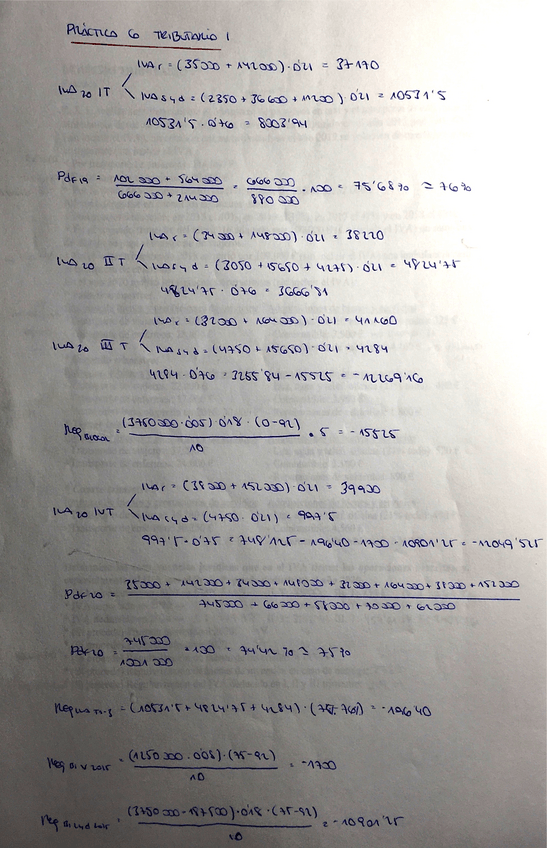 PRÁCTICA 6 TRIBUTARIO I
IVA r = (35000 + 142000) · 0'21 = 37170
IVA 20 IT
IVA s y d = (2350 + 36600 + 11200) · 0'21 = 10531'5
10531'5 · 0'76 = 8003'94
Pdf 19 = 102 000 + 564 000 / 666 000 + 214 000 = 666 000 / 880 000 · 100 = 75'68 % ≃ 76%
IVA r = (34000 + 148000) · 0'21 = 38220
IVA 20 II T
IVA s y d = (3050 + 15650 + 4275) · 0'21 = 4824'75
4824'75 · 0'76 = 3666'81
IVA r = (32000 + 164000) · 0'21 = 41160
IVA 20 III T
IVA s y d = (4750 + 15650) · 0'21 = 4284
4284 · 0'76 = 3255'84 - 15525 = -12269'16
Reg = (3750 000 · 0'05) · 0'18 · (0-92) / 10 · 5 = -15525
IVA r = (38000 + 152000) · 0'21 = 39900
IVA 20 IV T
IVA s y d = (4750 · 0'21) = 997'5
997'5 · 0'75 = 748'125 - 196'40 - 1700 - 10901'25 = -12049'525
Pdf 20 = 35000 + 142000 + 34000 + 148000 + 32000 + 164000 + 38000 + 152000 / 745000 + 66000 + 58000 + 70000 + 62000
Pdf 20 = 745000 / 1001000 · 100 = 74'42 % ≃ 75%
Reg = (10531'5 + 4824'75 + 4284) · (75%-76%) = -196'40
Reg BI V 2015 = (1250 000 · 0'08) · (75-92) / 10 = -1700
Reg BI s y d 2015 = (3750 000 - 187500) · 0'18 · (75-92) / 10 = -10901'25